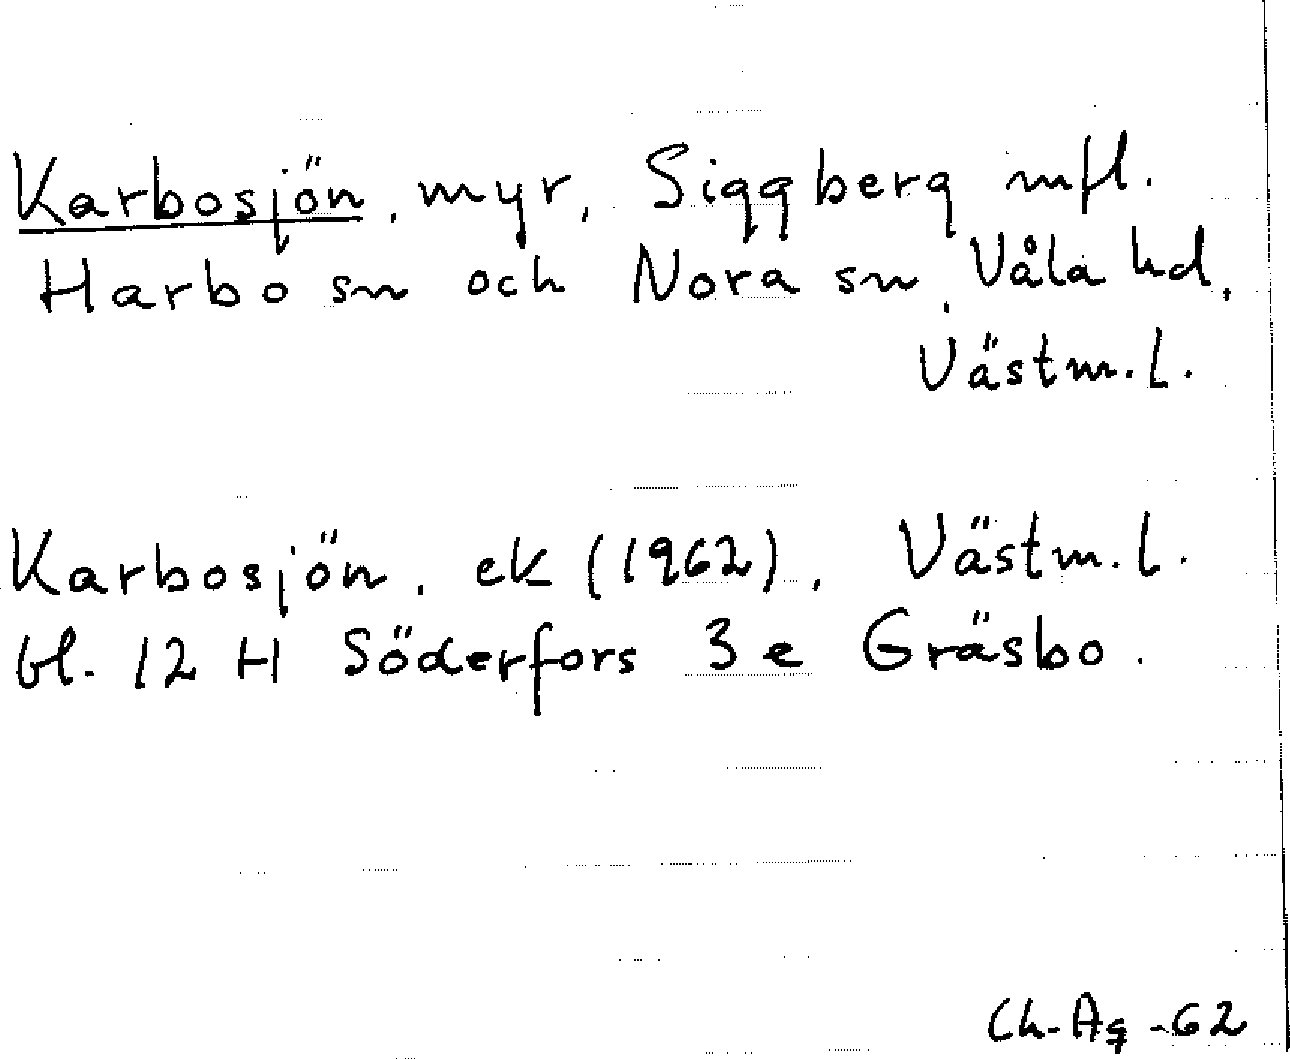 Karbosjön, myr, Siggberg mfl.
Harbo sn och Nora sn, Våla hd,
Västm. l.
Karbosjön, ek (1962), Västm. l.
bl. 12 H Söderfors 3 e Gräsbo.
Ch-Ag -62